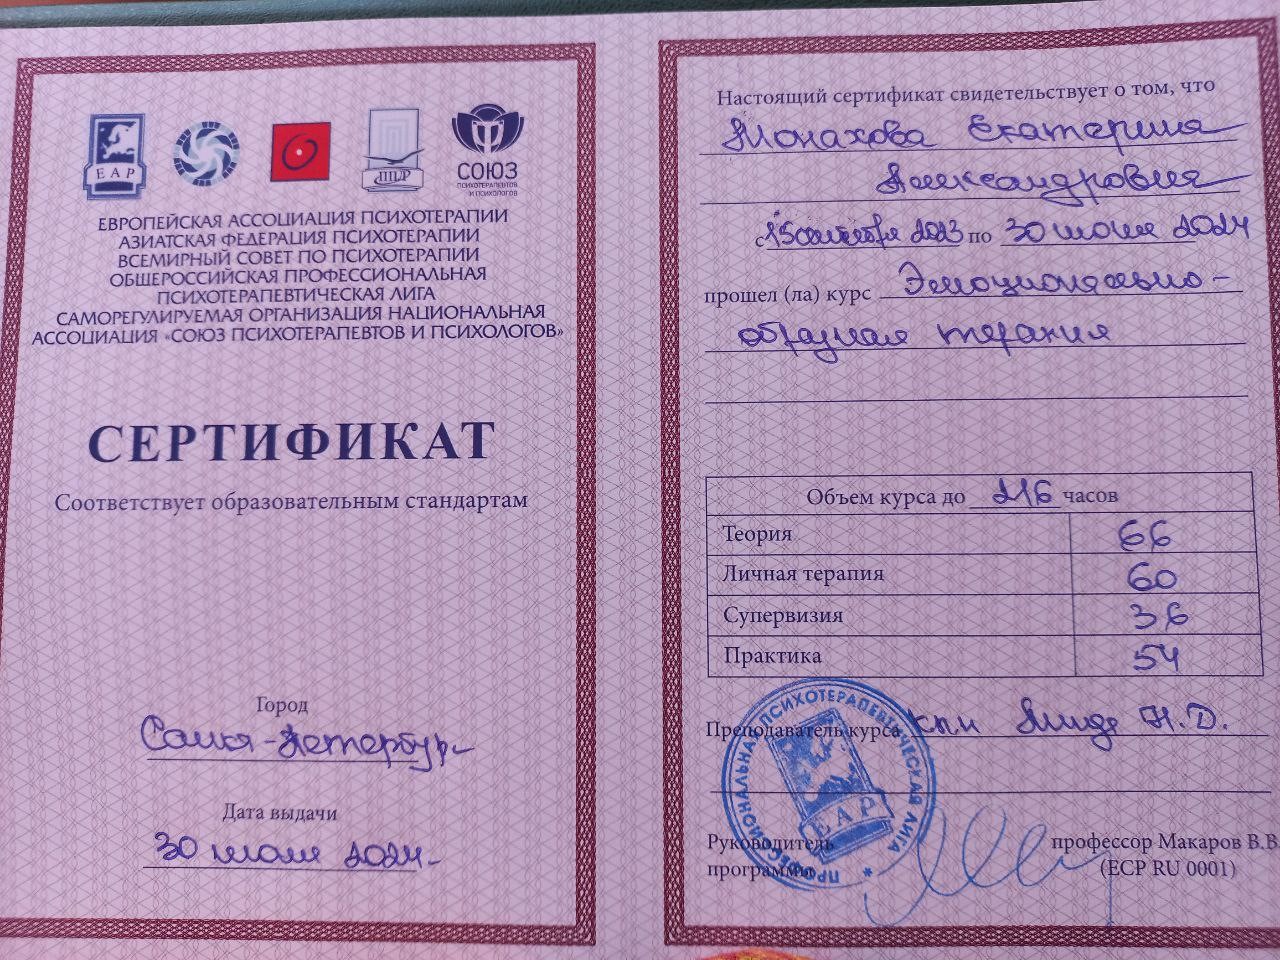 ЕАР
ППЛ
СОЮЗ
ПСИХОТЕРАПЕВТОВ
И ПСИХОЛОГОВ
ЕВРОПЕЙСКАЯ АССОЦИАЦИЯ ПСИХОТЕРАПИИ
АЗИАТСКАЯ ФЕДЕРАЦИЯ ПСИХОТЕРАПИИ
ВСЕМИРНЫЙ СОВЕТ ПО ПСИХОТЕРАПИИ
ОБЩЕРОССИЙСКАЯ ПРОФЕССИОНАЛЬНАЯ
ПСИХОТЕРАПЕВТИЧЕСКАЯ ЛИГА
САМОРЕГУЛИРУЕМАЯ ОРГАНИЗАЦИЯ НАЦИОНАЛЬНАЯ
АССОЦИАЦИЯ «СОЮЗ ПСИХОТЕРАПЕВТОВ И ПСИХОЛОГОВ»
СЕРТИФИКАТ
Соответствует образовательным стандартам
Город
Санкт-Петербург
Дата выдачи
30 июня 2024
Настоящий сертификат свидетельствует о том, что
Монахова Екатерина
Александровна
с 15 сентября 2023 по 30 июня 2024
прошел (ла) курс Эмоционально-
образная терапия
Объем курса до 216 часов
Теория 66
Личная терапия 60
Супервизия 36
Практика 54
Преподаватель курса кпн Линде Н.Д.
Руководитель профессор Макаров В.В.
программы (ECP RU 0001)
ПРОФЕССИОНАЛЬНАЯ ПСИХОТЕРАПЕВТИЧЕСКАЯ ЛИГА *
ЕАР